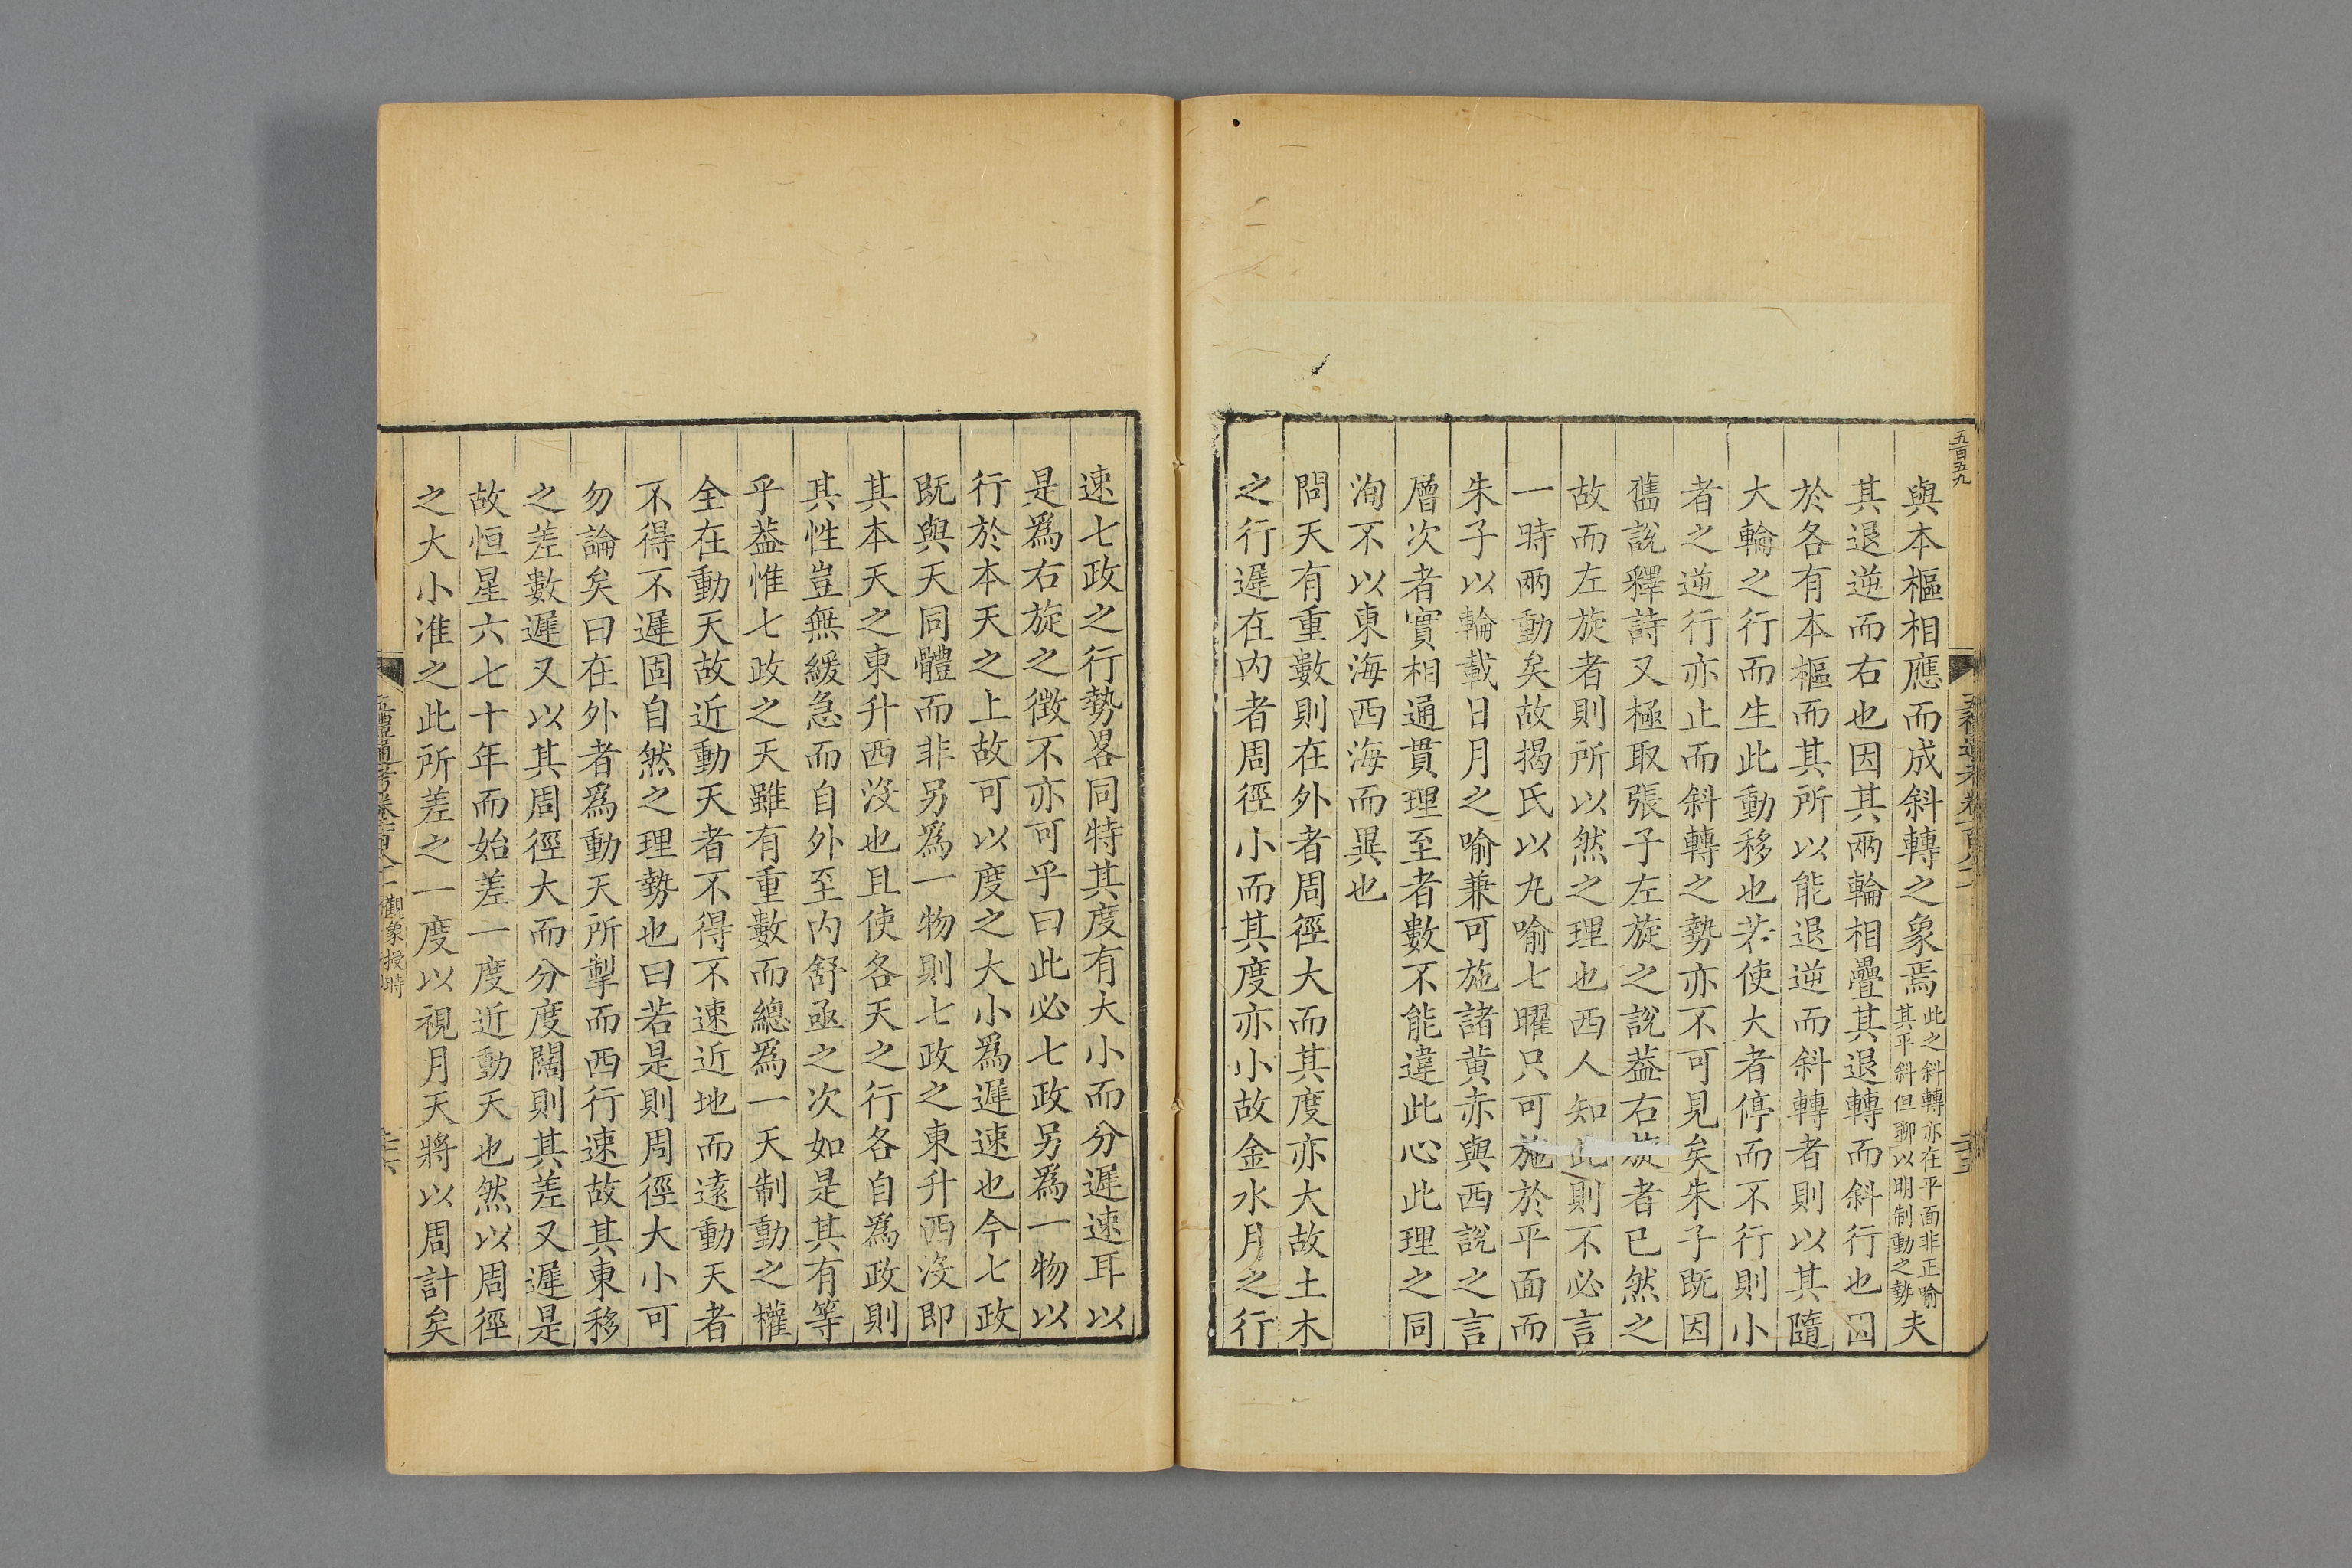 五百五九
與本樞相應而成斜轉之象焉此之斜轉亦在平面非正喻其平斜但聊以明制動之勢夫
其退逆而右也因其兩輪相疊其退轉而斜行也因
於各有本樞而其所以能退逆而斜轉者則以其隨
大輪之行而生此動移也若使大者停而不行則小
者之逆行亦止而斜轉之勢亦不可見矣朱子既因
舊說釋詩又極取張子左旋之說葢右旋者已然之
故而左旋者則所以然之理也西人知此則不必言
一時兩動矣故揭氏以丸喻七曜只可施於平面而
朱子以輪載日月之喻兼可施諸黄赤與西說之言
層次者實相通貫理至者數不能違此心此理之同
洵不以東海西海而異也
問天有重數則在外者周徑大而其度亦大故土木
之行遲在内者周徑小而其度亦小故金水月之行
速七政之行勢畧同特其度有大小而分遲速耳以
是爲右旋之徴不亦可乎曰此必七政另爲一物以
行於本天之上故可以度之大小爲遲速也今七政
既與天同體而非另爲一物則七政之東升西沒即
其本天之東升西沒也且使各天之行各自爲政則
其性豈無緩急而自外至内舒亟之次如是其有等
乎葢惟七政之天雖有重數而總爲一天制動之權
全在動天故近動天者不得不速近地而遠動天者
不得不遲固自然之理勢也曰若是則周徑大小可
勿論矣曰在外者爲動天所掣而西行速故其東移
之差數遲又以其周徑大而分度闊則其差又遲是
故恒星六七十年而始差一度近動天也然以周徑
之大小准之此所差之一度以視月天將以周計矣
五禮通考卷一百八十二 觀象授時